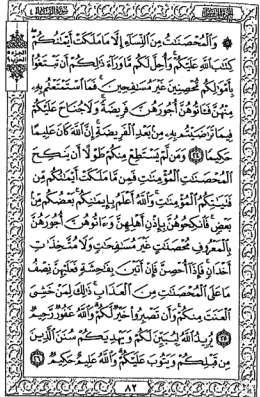 وَالْمُحْصَنَاتُ مِنَ النِّسَاءِ إِلَّا مَا مَلَكَتْ أَيْمَانُكُمْ
كِتَابَ اللَّهِ عَلَيْكُمْ وَأُحِلَّ لَكُم مَّا وَرَاءَ ذَٰلِكُمْ أَن تَبْتَغُوا
بِأَمْوَالِكُم مُّحْصِنِينَ غَيْرَ مُسَافِحِينَ فَمَا اسْتَمْتَعْتُم بِهِ
مِنْهُنَّ فَآتُوهُنَّ أُجُورَهُنَّ فَرِيضَةً وَلَا جُنَاحَ عَلَيْكُمْ
فِيمَا تَرَاضَيْتُم بِهِ مِن بَعْدِ الْفَرِيضَةِ إِنَّ اللَّهَ كَانَ عَلِيمًا
حَكِيمًا ٢٤ وَمَن لَّمْ يَسْتَطِعْ مِنكُمْ طَوْلًا أَن يَنكِحَ
الْمُحْصَنَاتِ الْمُؤْمِنَاتِ فَمِن مَّا مَلَكَتْ أَيْمَانُكُم مِّن
فَتَيَاتِكُمُ الْمُؤْمِنَاتِ وَاللَّهُ أَعْلَمُ بِإِيمَانِكُم بَعْضُكُم مِّن
بَعْضٍ فَانكِحُوهُنَّ بِإِذْنِ أَهْلِهِنَّ وَآتُوهُنَّ أُجُورَهُنَّ
بِالْمَعْرُوفِ مُحْصَنَاتٍ غَيْرَ مُسَافِحَاتٍ وَلَا مُتَّخِذَاتِ
أَخْدَانٍ فَإِذَا أُحْصِنَّ فَإِنْ أَتَيْنَ بِفَاحِشَةٍ فَعَلَيْهِنَّ نِصْفُ
مَا عَلَى الْمُحْصَنَاتِ مِنَ الْعَذَابِ ذَٰلِكَ لِمَنْ خَشِيَ
الْعَنَتَ مِنكُمْ وَأَن تَصْبِرُوا خَيْرٌ لَّكُمْ وَاللَّهُ غَفُورٌ رَّحِيمٌ
٢٥ يُرِيدُ اللَّهُ لِيُبَيِّنَ لَكُمْ وَيَهْدِيَكُمْ سُنَنَ الَّذِينَ
مِن قَبْلِكُمْ وَيَتُوبَ عَلَيْكُمْ وَاللَّهُ عَلِيمٌ حَكِيمٌ ٢٦
٨٢